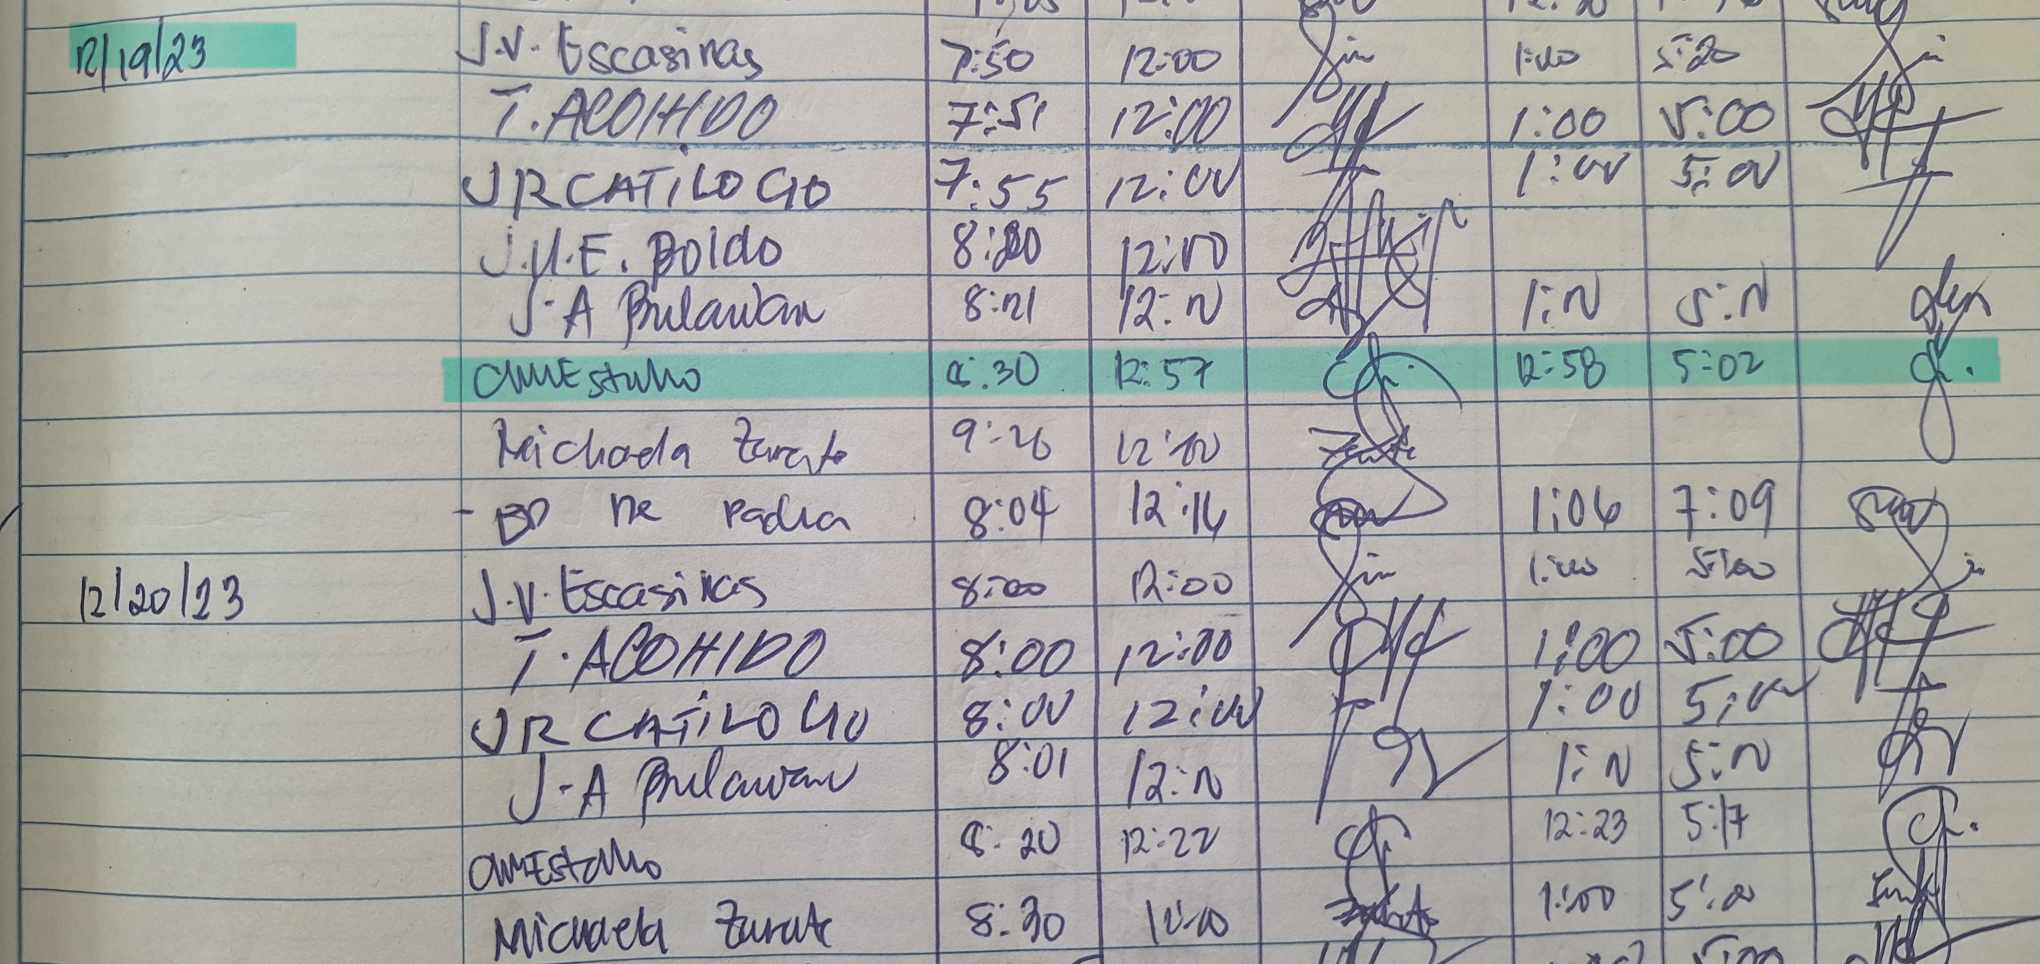 12/19/23 J.V. Escasinas 7:50 12:00 1:00 5:20
T. ACOHIDO 7:51 12:00 1:00 5:00
JR CATILOGO 7:55 12:00 1:00 5:00
J.M.E. Boldo 8:20 12:00
J-A Bulawan 8:21 12:N 1:N 5:N
8:30 12:57 12:58 5:02
Michaela Zarate 9:26 12:00
- BD De Padua 8:04 12:14 1:06 7:09
12/20/23 J.V. Escasinas 8:00 12:00 1:00 5:00
T. ACOHIDO 8:00 12:00 1:00 5:00
JR CATILOGO 8:00 12:00 1:00 5:00
J-A Bulawan 8:01 12:N 1:N 5:N
8:20 12:22 12:23 5:17
Michaela Zarate 8:30 12:00 1:00 5:00